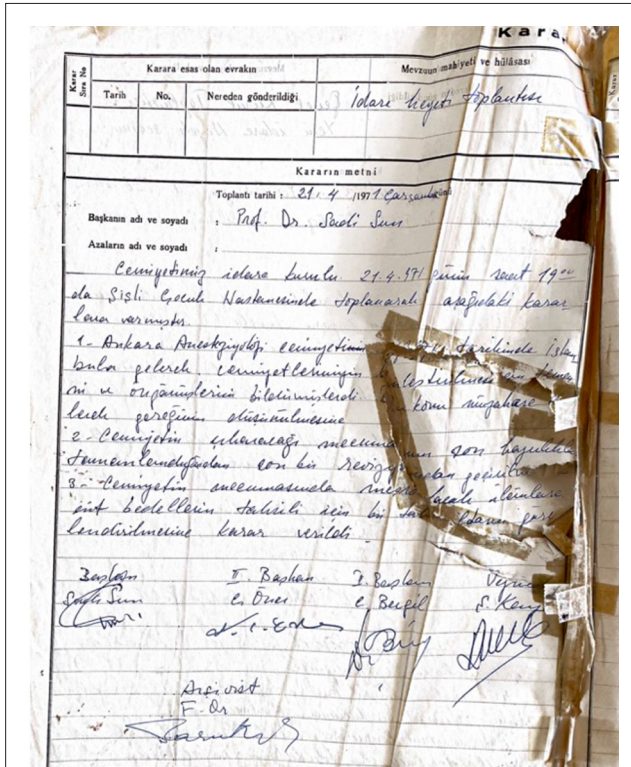 Kara
Karar Sıra No
Karara esas olan evrakın
Mevzuun mahiyeti ve hülâsası
Tarih No. Nereden gönderildiği
İdare heyeti toplantısı
Kararın metni
Toplantı tarihi : 21.4 /1971 Çarşamba günü
Başkanın adı ve soyadı : Prof. Dr. Sadi Sun
Azaların adı ve soyadı :
Cemiyetimiz idare kurulu 21.4.971 günü saat 19⁰⁰
da Şişli Çocuk Hastanesinde toplanarak aşağıdaki karar
lara varmıştır.
1- Ankara Anesteziyoloji cemiyetinin tarihinde İstan
bula gelerek cemiyetlerimizin birleştirilmesi için
ni ve bildirmişlerdi. Bu konu müzakere
lerek gereğinin düşünülmesine
2- Cemiyetin çıkaracağı mecmuanın son hazırlıkla
tamamlandığından son bir revizyondan
3- Cemiyetin mecmuasında ilanlara
ait bedellerin tahsili için bir
lendirilmesine karar verildi.
Başkan II. Başkan Üye
Sadi Sun C. Öner C. Bergil S.
Arşivist
F. Or